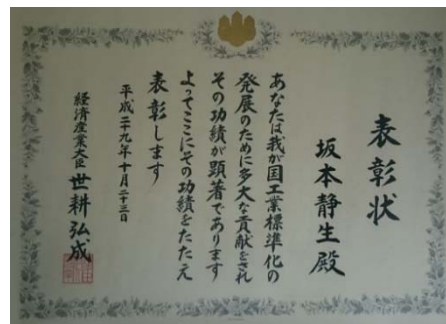 表彰状
坂本静生殿
あなたは我が国工業標準化の
発展のために多大な貢献をされ
その功績が顕著であります
よってここにその功績をたたえ
表彰します
平成二十九年十月二十三日
経済産業大臣 世耕弘成